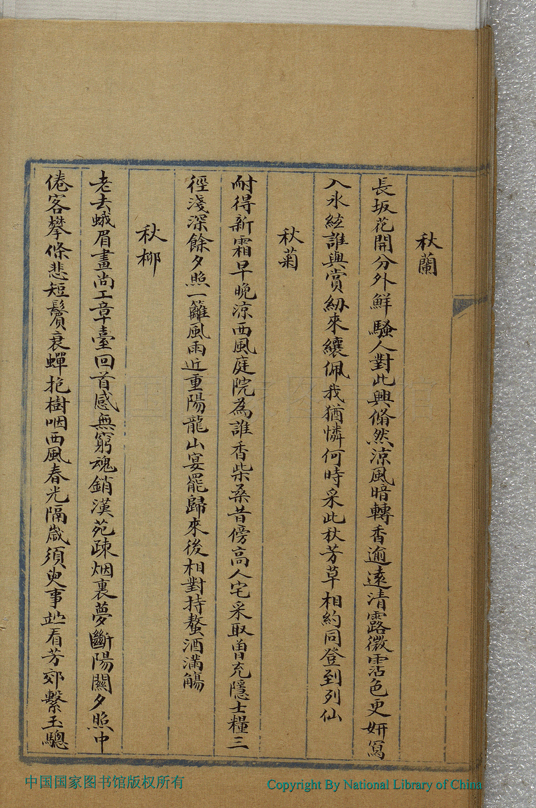 秋蘭
長坂花開分外鮮騷人對此興翛然涼風暗轉香逾遠清露微霑色更妍寫
入氷絃誰與賞紉來纕佩我猶憐何時采此秋芳草相約同登到列仙
秋菊
耐得新霜早晚涼西風庭院為誰香柴桑昔傍高人宅采取曽充隱士糧三
徑淺深餘夕照一籬風雨近重陽龍山宴罷歸來後相對持螯酒滿觴
秋柳
老去蛾眉畫尚工章臺回首感無窮魂銷漢苑疎烟裏夢斷陽關夕照中
倦客攀條悲短鬢衰蟬抱樹咽西風春光隔歲須臾事竚看芳郊繫玉驄
中国国家图书馆版权所有
Copyright By National Library of China